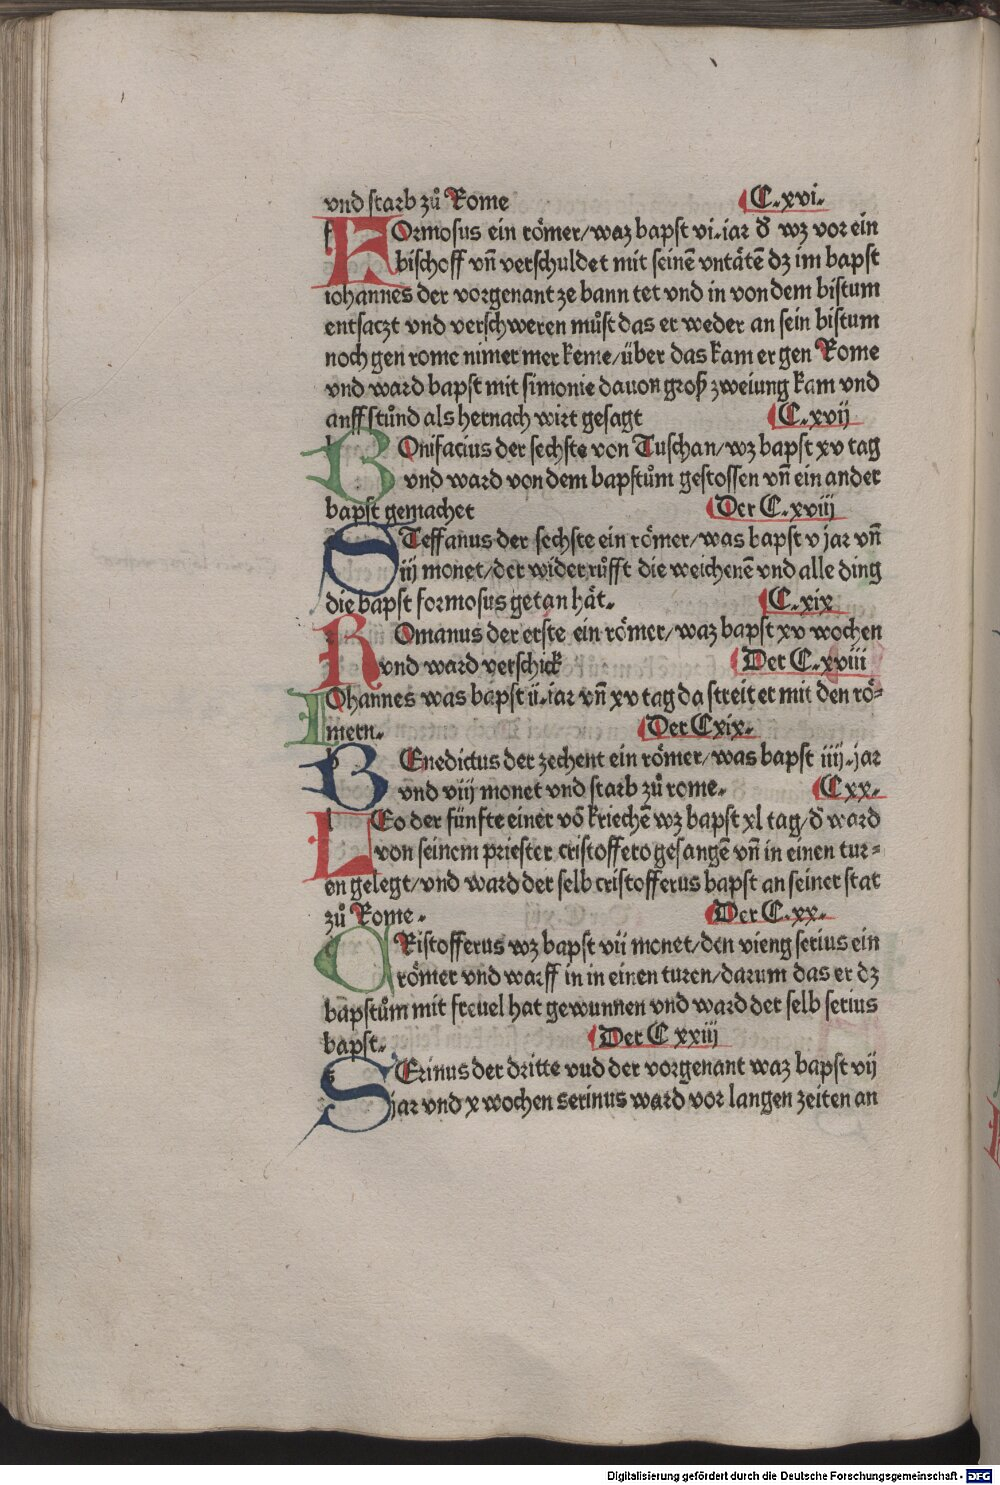 vnd starb zuͦ Rome C.xvi.
FOrmosus ein roͤmer/waz bapst vi.iar đ wz vor ein
bischoff vn̄ verschuldet mit seinē vntaͤtē dz im bapst
iohannes der vorgenant ze bann tet vnd in von dem bistum
entsaczt vnd verschweren muͦst das er weder an sein bistum
noch gen rome nimer mer keme/über das kam er gen Rome
vnd ward bapst mit simonie dauon groß zweiung kam vnd
anff stuͦnd als hernach wirt gesagt C.xvij
BOnifacius der sechste von Tuschan/wz bapst xv tag
vnd ward von dem bapstuͦm gestossen vn̄ ein ander
bapst gemachet Der C.xviij
STeffanus der sechste ein roͤmer/was bapst v jar vn̄
iij monet/der wider ruͦfft die weichenē vnd alle ding
die bapst formosus getan haͤt. C.xix
ROmanus der erste ein roͤmer/waz bapst xv wochen
vnd ward verschick Der C.xviii
IOhannes was bapst ii.iar vn̄ xv tag da streit et mit den roͤ-
mern. Der Cxix.
BEnedictus der zechent ein roͤmer/was bapst iiij.jar
vnd viij monet vnd starb zuͦ rome. Cxx.
LEo der fünfte einer vō kriechē wz bapst xl tag/đ ward
von seinem priester cristoffero gesangē vn̄ in einen tur-
en gelegt/vnd ward der selb cristofferus bapst an seiner stat
zuͦ Rome. Der C.xx.
CRistofferus wz bapst vii monet/den vieng serius ein
roͤmer vnd warff in in einen turen/darum das er dz
bapstuͦm mit freuel hat gewunnen vnd ward der selb serius
bapst. Der C xxiij
SErinus der dritte vud der vorgenant waz bapst vij
jar vnd x wochen serinus ward vor langen zeiten an
Digitalisierung gefördert durch die Deutsche Forschungsgemeinschaft - DFG